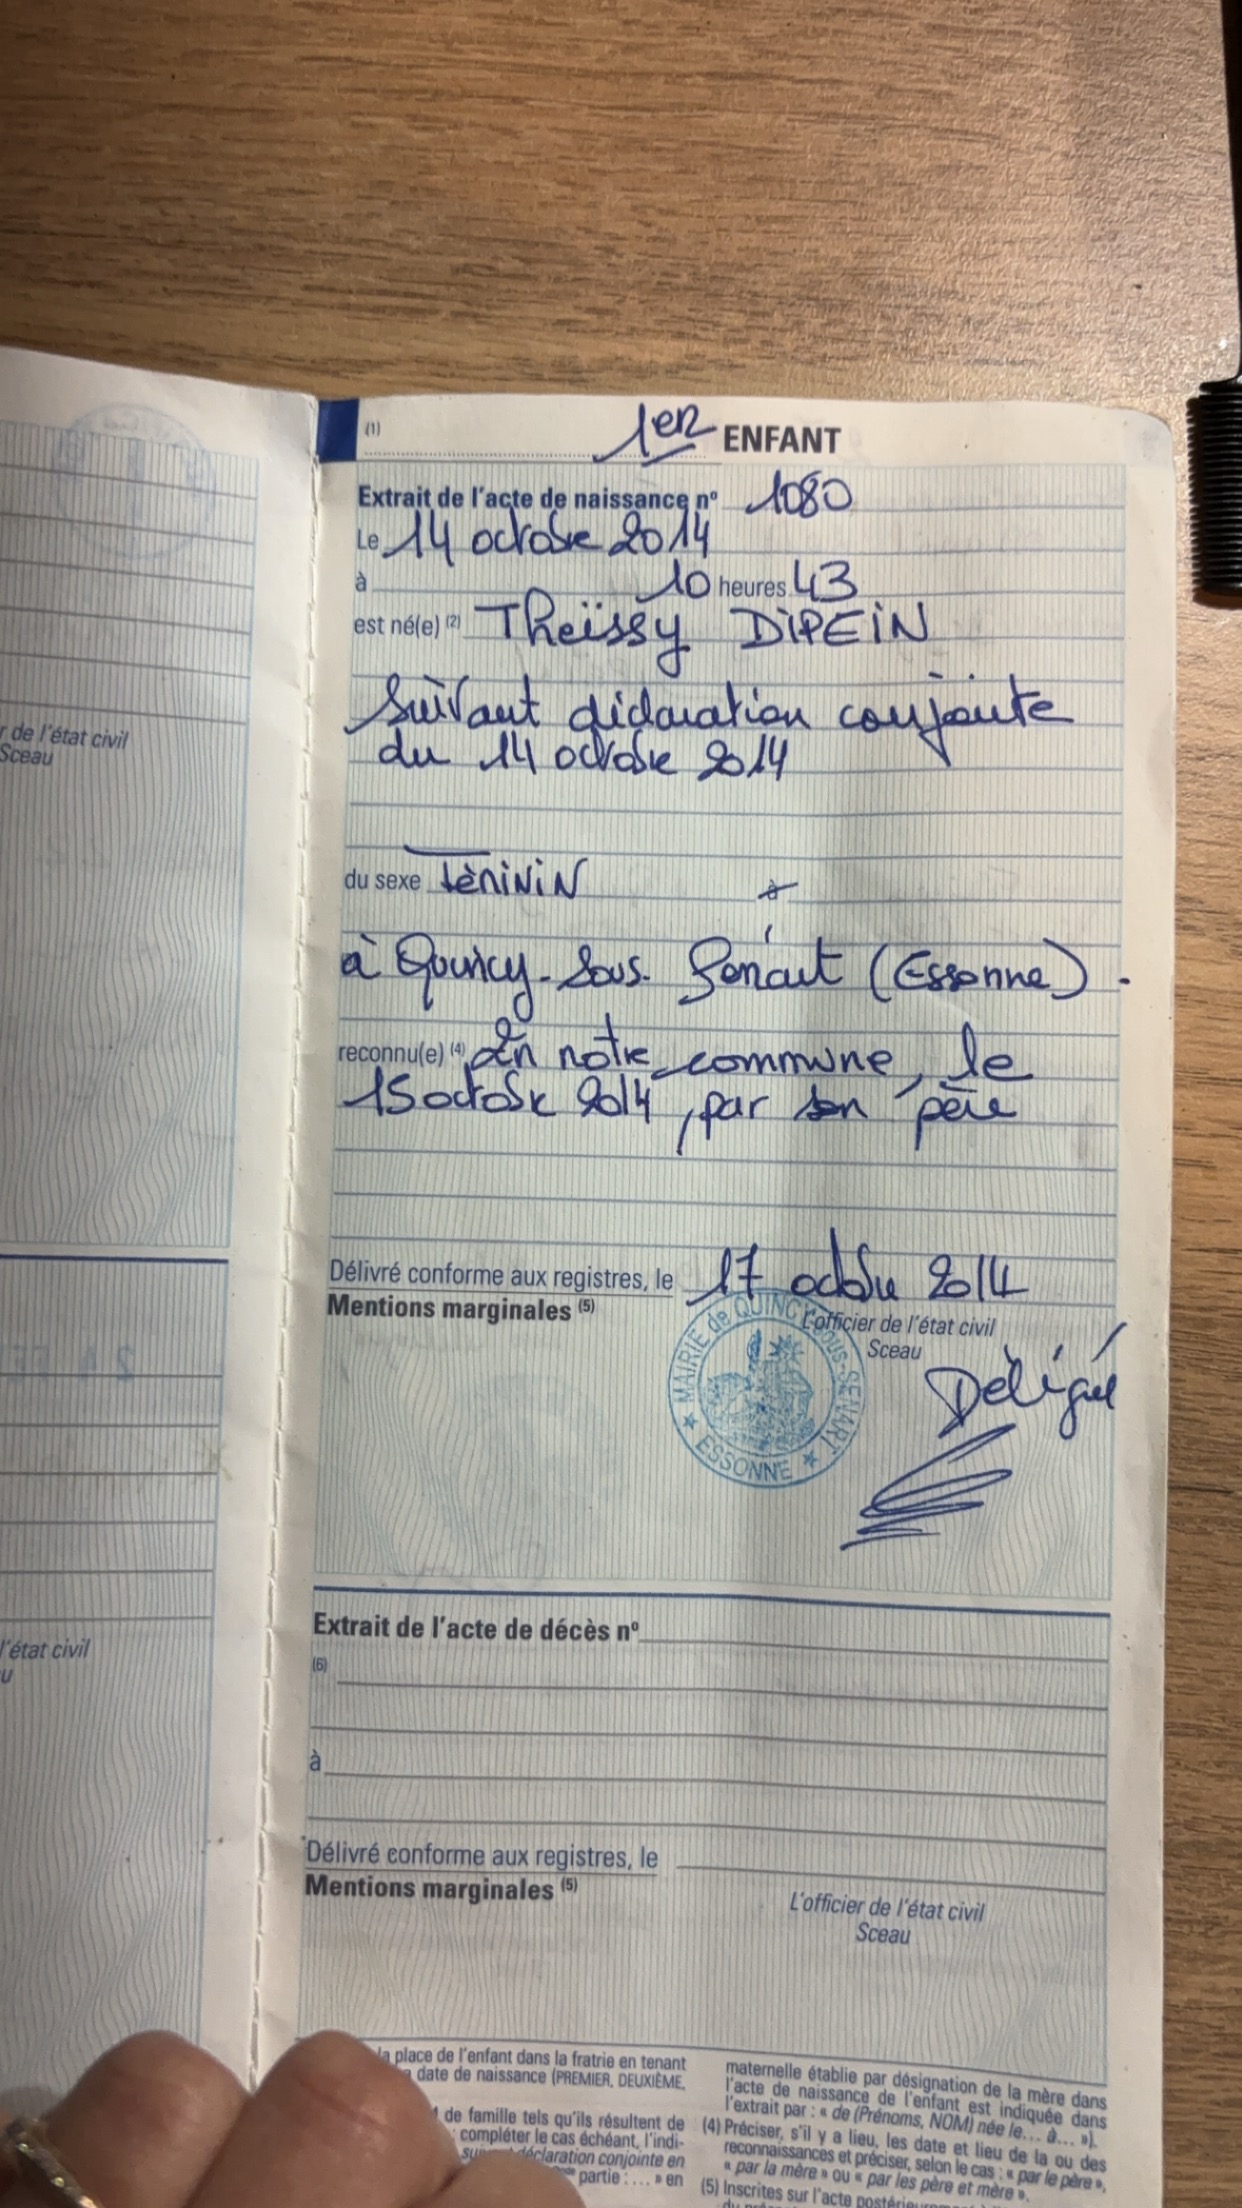 (1) 1er ENFANT
Extrait de l'acte de naissance n° 1080
Le 14 octobre 2014
à 10 heures 43
est né(e) (2) Theïssy DIPEIN
Suivant déclaration conjointe
du 14 octobre 2014
du sexe féminin
à Quincy-Sous-Sénart (Essonne).
reconnu(e) (4) En notre commune, le
15 octobre 2014, par son père
Délivré conforme aux registres, le 17 octobre 2014
Mentions marginales (5)
L'officier de l'état civil
Sceau
MAIRIE de QUINCY-SOUS-SENART
ESSONNE
Délégué
r de l'état civil
Sceau
Extrait de l'acte de décès n°
(6)
à
l'état civil
u
Délivré conforme aux registres, le
Mentions marginales (5)
L'officier de l'état civil
Sceau
la place de l'enfant dans la fratrie en tenant
date de naissance (PREMIER, DEUXIÈME,
de famille tels qu'ils résultent de
: compléter le cas échéant, l'indi-
déclaration conjointe en
partie : ... » en
maternelle établie par désignation de la mère dans
l'acte de naissance de l'enfant est indiquée dans
l'extrait par : « de (Prénoms, NOM) née le... à... »).
(4) Préciser, s'il y a lieu, les date et lieu de la ou des
reconnaissances et préciser, selon le cas : « par le père »,
« par la mère » ou « par les père et mère ».
(5) Inscrites sur l'acte